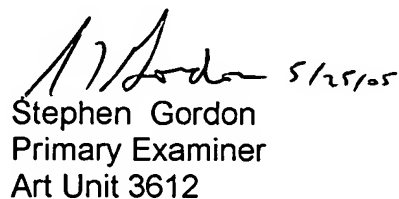 S Gordon 5/25/05
Stephen Gordon
Primary Examiner
Art Unit 3612